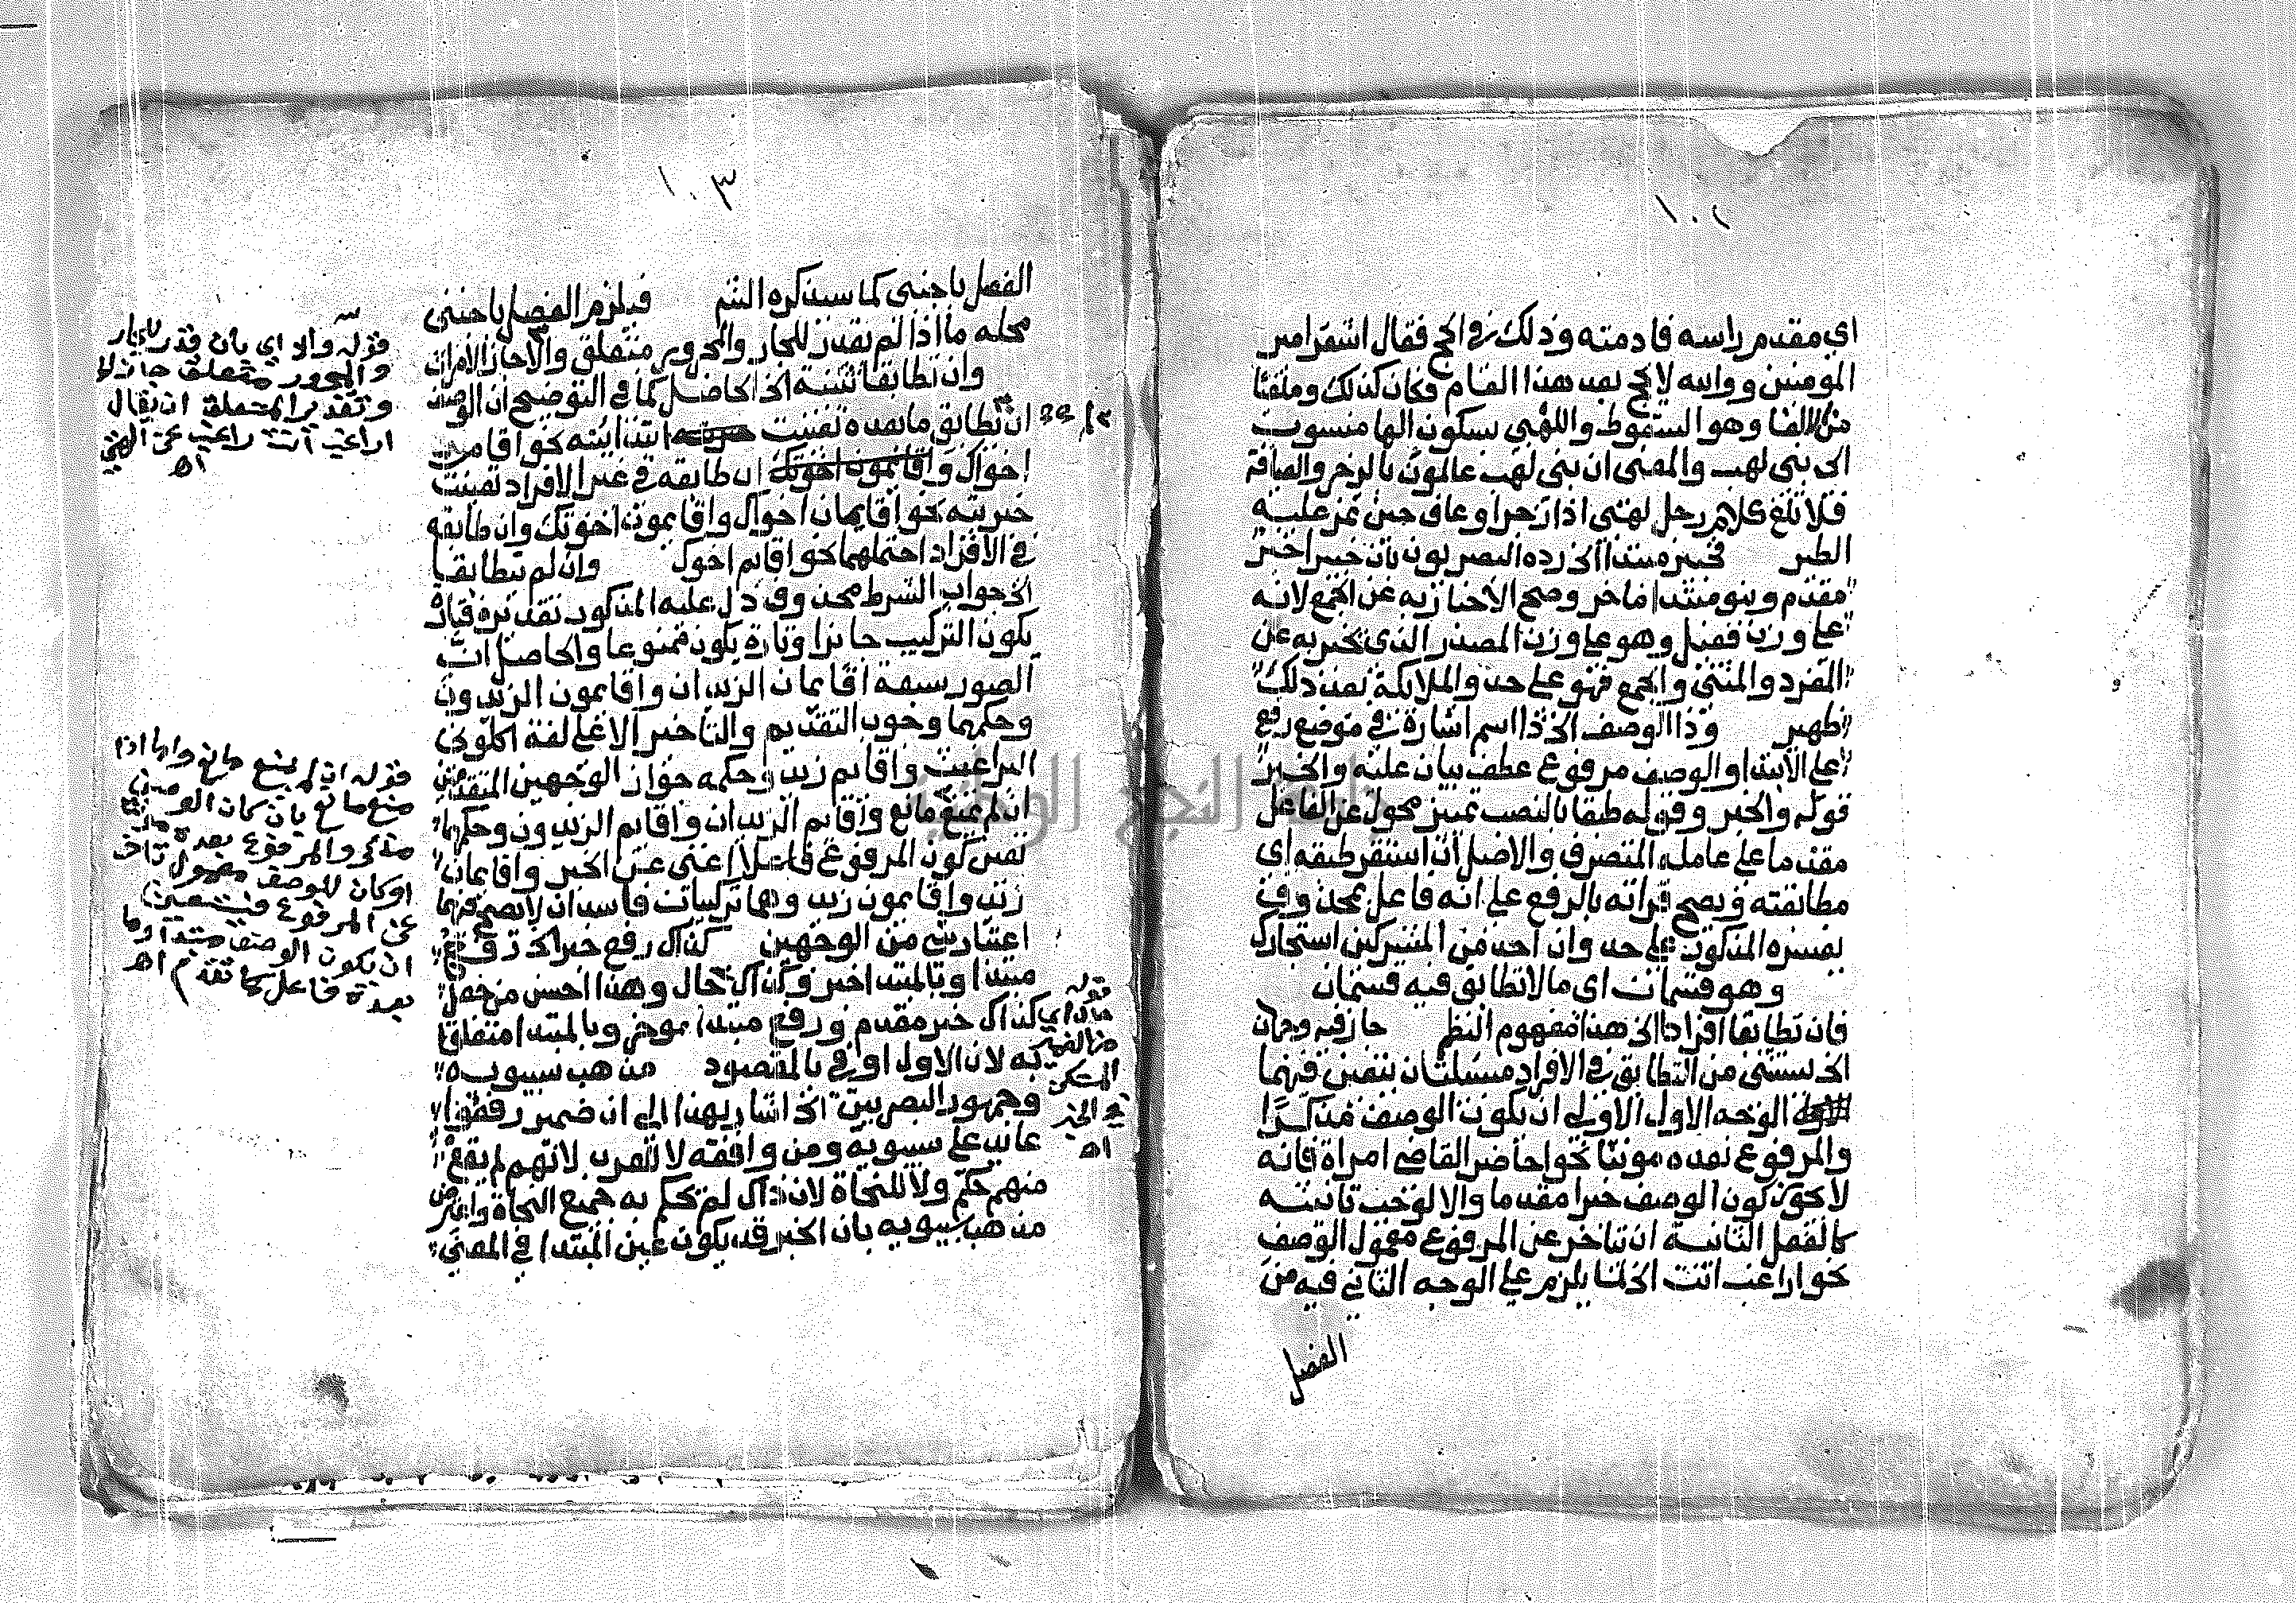 ١٠٢
اي مقدم راسه فادمته وذلك في الحج فقال اشقر امير
المومنين ووالله لا يحج بعد هذا المقام فكان كذلك وملقيا
من الالفا وهو السقوط واللهبي بسكون الها منسوب
الى بني لهب والمعنى ان بني لهب عالمون بالزجر والعيافة
فلا تلغ كلام رجل لهبي اذا زجر اوعاف حين تمر عليه
الطير فخبير مبتدا الخ رده البصريون بان خبيرا خبر
مقدم وبنو مبتدا مؤخر وصح الاخبار به عن الجمع لانه
على وزن فعيل وهو على وزن المصدر الذي يخبر به عن
المفرد والمثنى والجمع فهو على حد والملايكة بعد ذلك
ظهير وذا الوصف الخ ذا اسم اشارة في موضع رفع
على الابتدا والوصف مرفوع عطف بيان عليه والخبر
قوله والخبر وقوله طبقا بالنصب تمييز محول عن الفاعل
مقدما على عامله المتصرف والاصل ان استقر طبقه اي
مطابقته ويصح قراته بالرفع على انه فاعل بمحذوف
يفسره المذكور على حد وان احد من المشركين استجارك
وهو قسمان اي ما لا تطابق فيه قسمان
فان تطابقا افرادا الخ هذا مفهوم النظم جاز فيه وجهان
الخ يستثنى من التطابق في الافراد مسئلتان يتعين فيهما
الوجه الاول الاولى ان يكون الوصف مذكرا
والمرفوع بعده مونثا نحو احاضر القاضي امراة فانه
لا يجوز كون الوصف خبرا مقدما والا لوجب تانيثه
كالفعل الثانية ان يتاخر عن المرفوع معمول الوصف
نحو اراغب انت الخ لما يلزم على الوجه الثاني فيه من
الفصل
١٠٣
الفصل باجنبي كما سيذكره الشم فيلزم الفصل باجنبي
محله ما اذا لم يقدر للجار والمجرور متعلق والا جاز الامران
وان تطابقا تثنية الخ الحاصل كما في التوضيح ان الوصف
ان تطابق ما بعده تعينت ابتدائيته نحو اقايم
اخواك وان طابقه في غير الافراد تعينت
خبريته نحو اقايمان اخواك واقايمون اخوتك وان طابقه
في الافراد احتملهما نحو اقايم اخوك وان لم يتطابقا
الخ جواب الشرط محذوف دل عليه المذكور تقديره فتارة
يكون التركيب جائزا وتارة يكون ممنوعا والحاصل ان
الصور سبعة اقايمان الزيدان واقايمون الزيدون
وحكمهما وجوب التقديم والتاخير الا على لغة اكلوني
البراغيث واقايم زيد وحكمه جواز الوجهين المتقدمين
ان لم يمنع مانع واقايم الزيدان واقايم الزيدون وحكمهما
تعين كون المرفوع فاعلا اغنى عن الخبر واقايمان
زيد واقايمون زيد وهما تركيبان فاسدان لا يصح فيهما
اعتبار شي من الوجهين كذاك رفع خبر الخ رفع
مبتدا وبالمبتدا خبر وكذاك حال وهذا احسن من جعل
كذاك خبر مقدم ورفع مبتدا موخر وبالمبتدا متعلقا
به لان الاول اوفى بالمقصود مذهب سيبويه
وجمهور البصريين الخ اشار بهذا الى ان ضمير رفعوا
عايد على سيبويه ومن وافقه لا للعرب لانهم لم يقع
منهم حكم ولا للنحاة لان ذاك لم يحكم به جميع النحاة واعترض
مذهب سيبويه بان الخبر قد يكون عين المبتدا في المعنى
قوله والا اي بان قدر للجار
والمجرور متعلق جاز لا
وتقدير المتعلق ان يقال
اراغب انت راغب عن الهتي
اه
قوله ان لم يمنع مانع واما اذا
منع مانع بان كان الوصف
مذكر والمرفوع بعده مونثا
اوكان للوصف معمول تاخر
عن المرفوع فيتعين
ان يكون الوصف مبتدا وما
بعده فاعل كما تقدم اه
قوله
حال اي
من الضمير
المستكن
في الخبر
اه